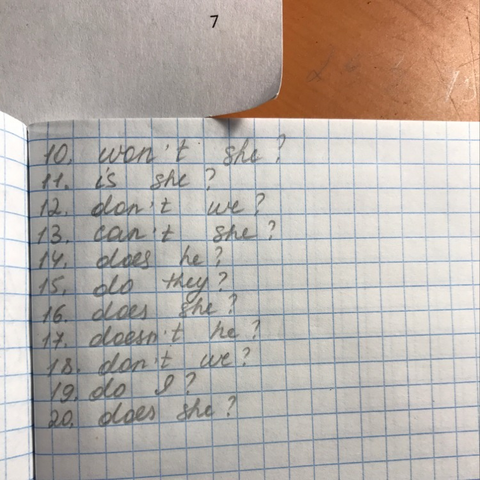 7
10. won't she?
11. is she?
12. don't we?
13. can't she?
14. does he?
15. do they?
16. does she?
17. doesn't he?
18. don't we?
19. do I?
20. does she?